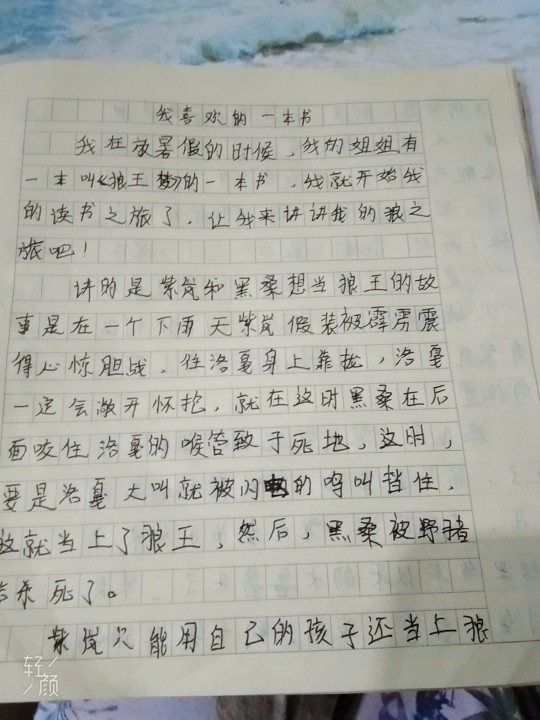 我喜欢的一本书
我在放暑假的时候，我的姐姐有
一本叫《狼王梦》的一本书，我就开始我
的读书之旅了，让我来讲讲我的狼之
旅吧！
讲的是紫岚和黑桑想当狼王的故
事是在一个下雨天紫岚假装被霹雳震
得心惊胆战，往洛戛身上靠拢，洛戛
一定会敞开怀抱，就在这时黑桑在后
面咬住洛戛的喉管致于死地，这时，
要是洛戛大叫就被闪电的鸣叫挡住，
这就当上了狼王，然后，黑桑被野猪
杀死了。
紫岚只能用自己的孩子还当上狼
轻
颜